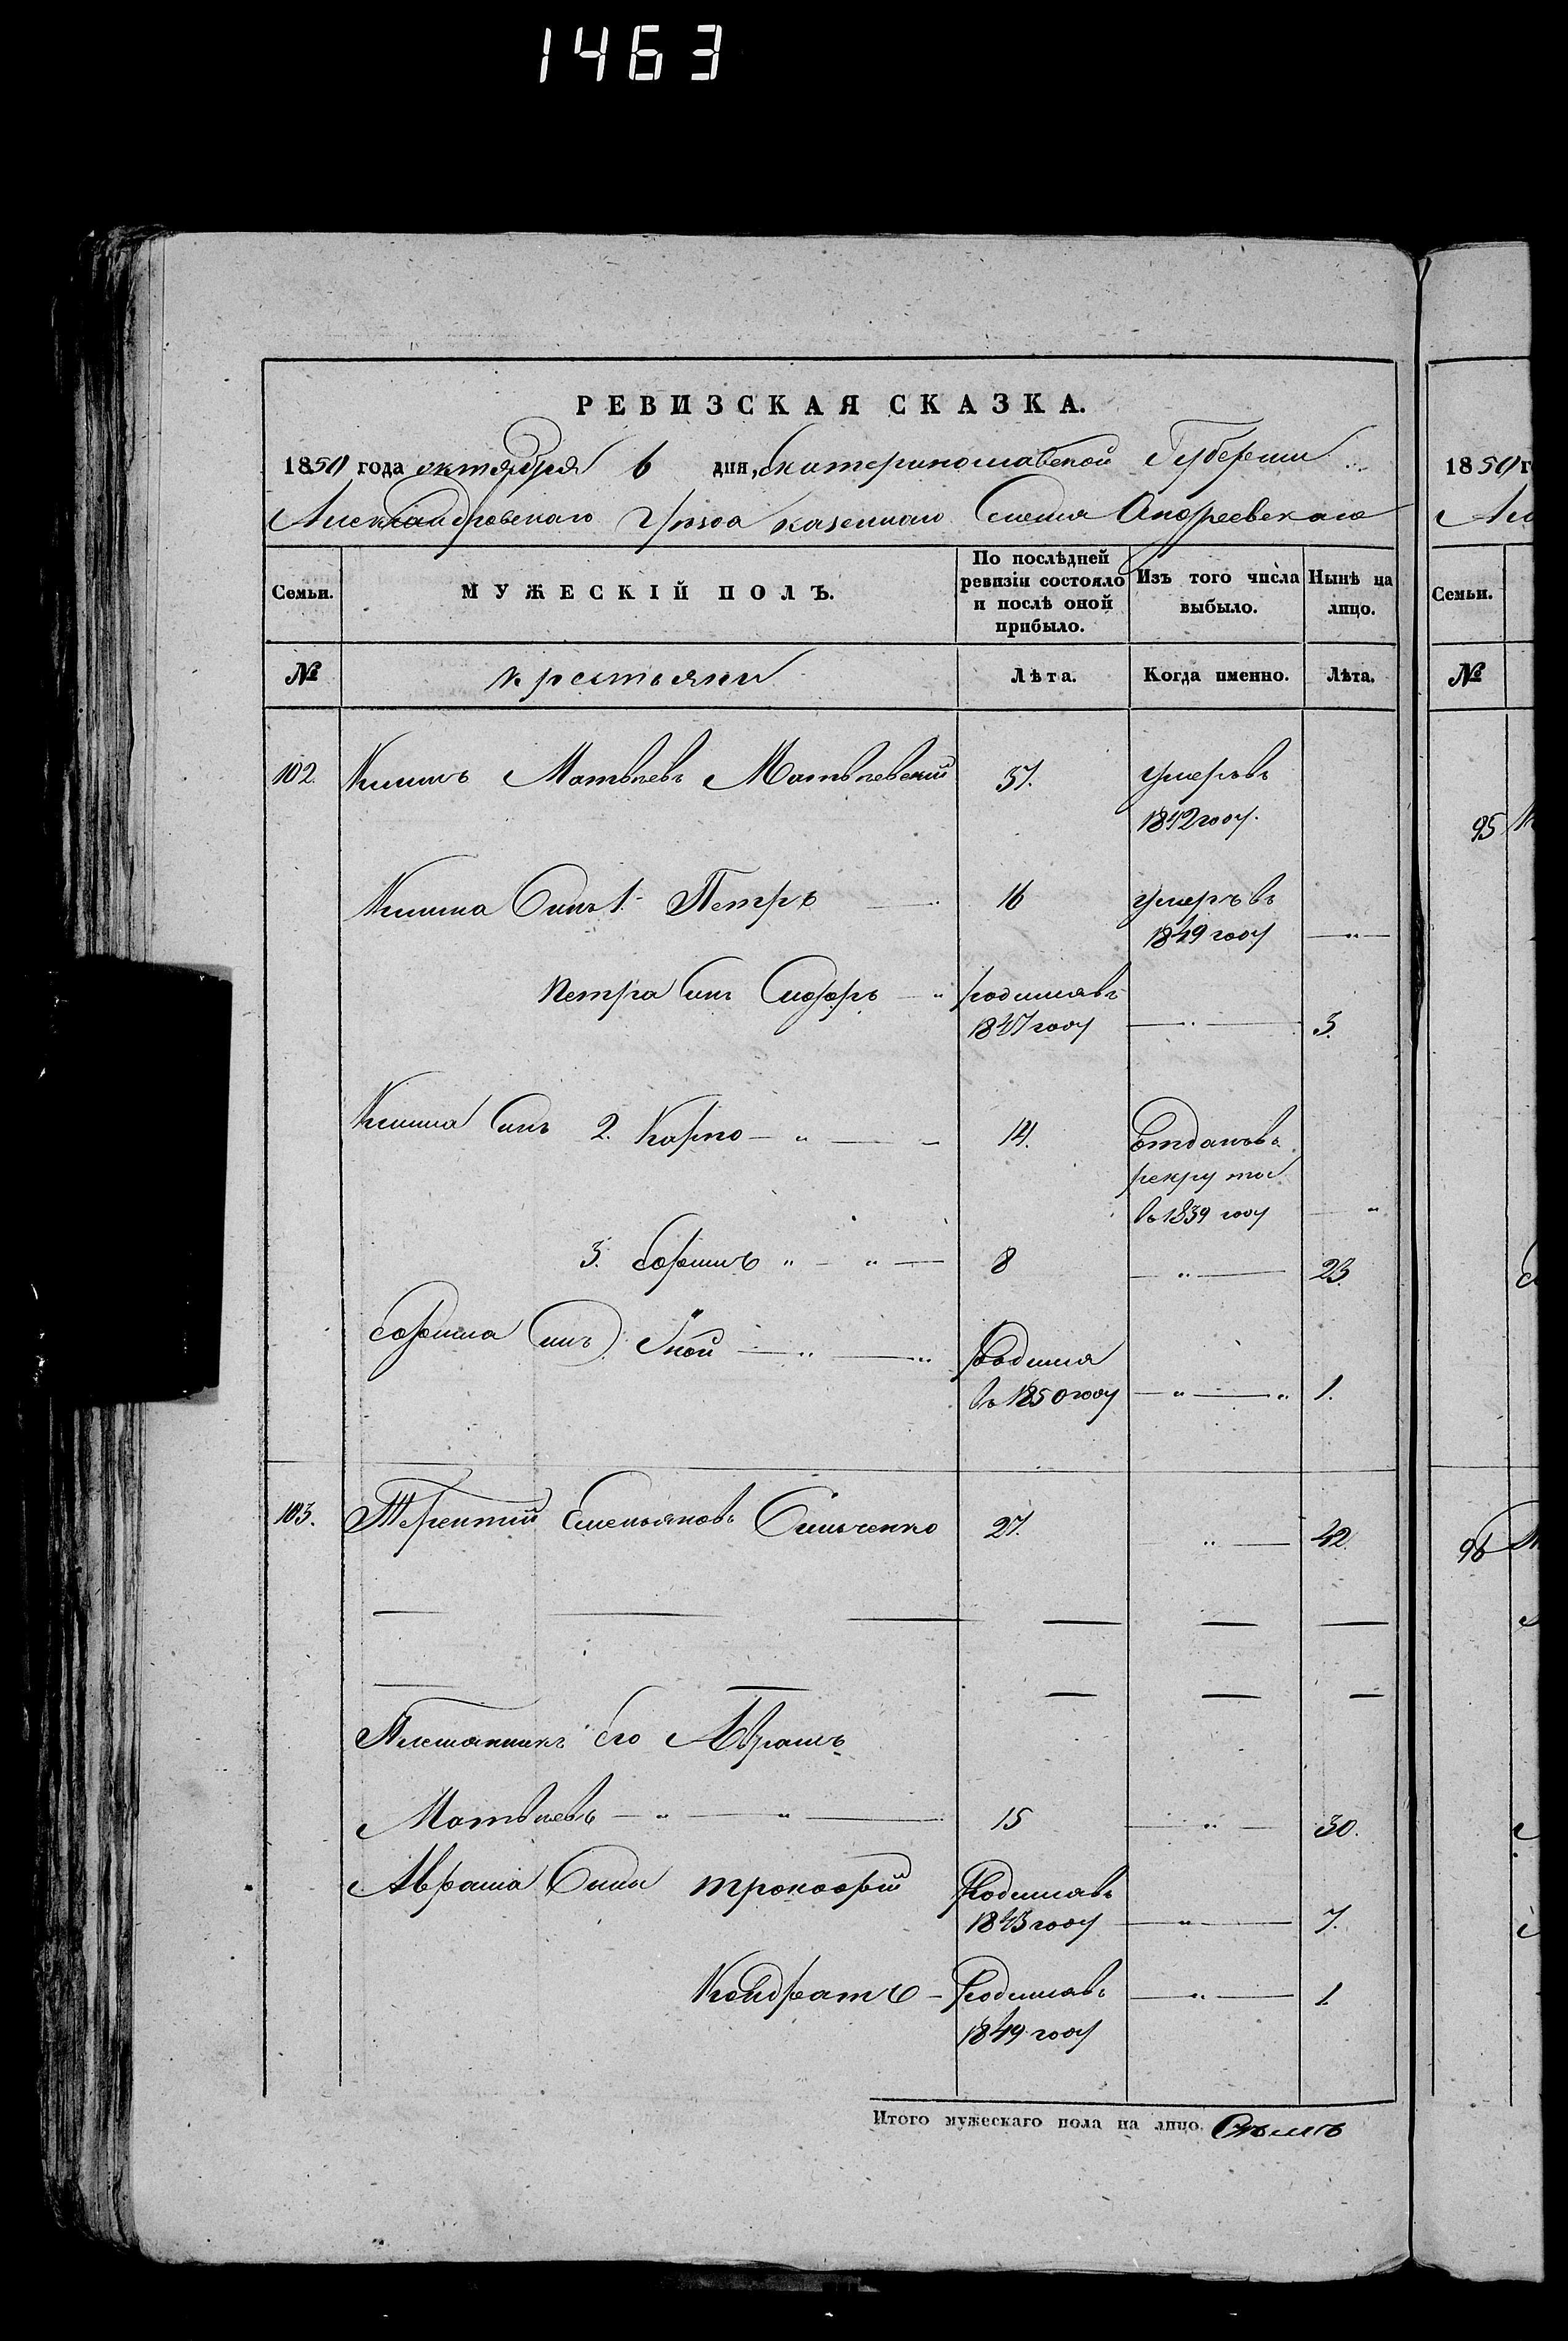 1463
РЕВИЗСКАЯ СКАЗКА.
1850 года октября 6 дня, Екатеринославской Губернии
Александровского Уѣзда казенного Селенія Андреевского
Семьи. МУЖЕСКІЙ ПОЛЪ. По послѣдней ревизіи состояло и послѣ оной прибыло. Изъ того числа выбыло. Нынѣ на лицо.
№ крестьяни Лѣта. Когда именно. Лѣта.
102. Климъ Матвѣевъ Матвѣевский 37. умеръ въ
1842 году.
Клима Синъ 1. Петръ 16 умеръ въ
1849 году
Петра Синъ Сидоръ родился въ
1847 году 3.
Клима Синъ 2. Карпо 14. Отданъ въ
рекруты
въ 1839 году
3. Ефимъ 8 23.
Ефима Синъ Родился
въ 1850 году 1.
103. Терентий Емельяновъ Сильченко 27. 42.
Племянникъ Его Аврамъ
Матвѣевъ 15 30.
Аврама Сины Родился въ
1843 году 7.
Кондратъ Родился въ
1849 году 1.
Итого мужескаго пола на лицо. Семь
1850 г
Семьи.
№
95
96